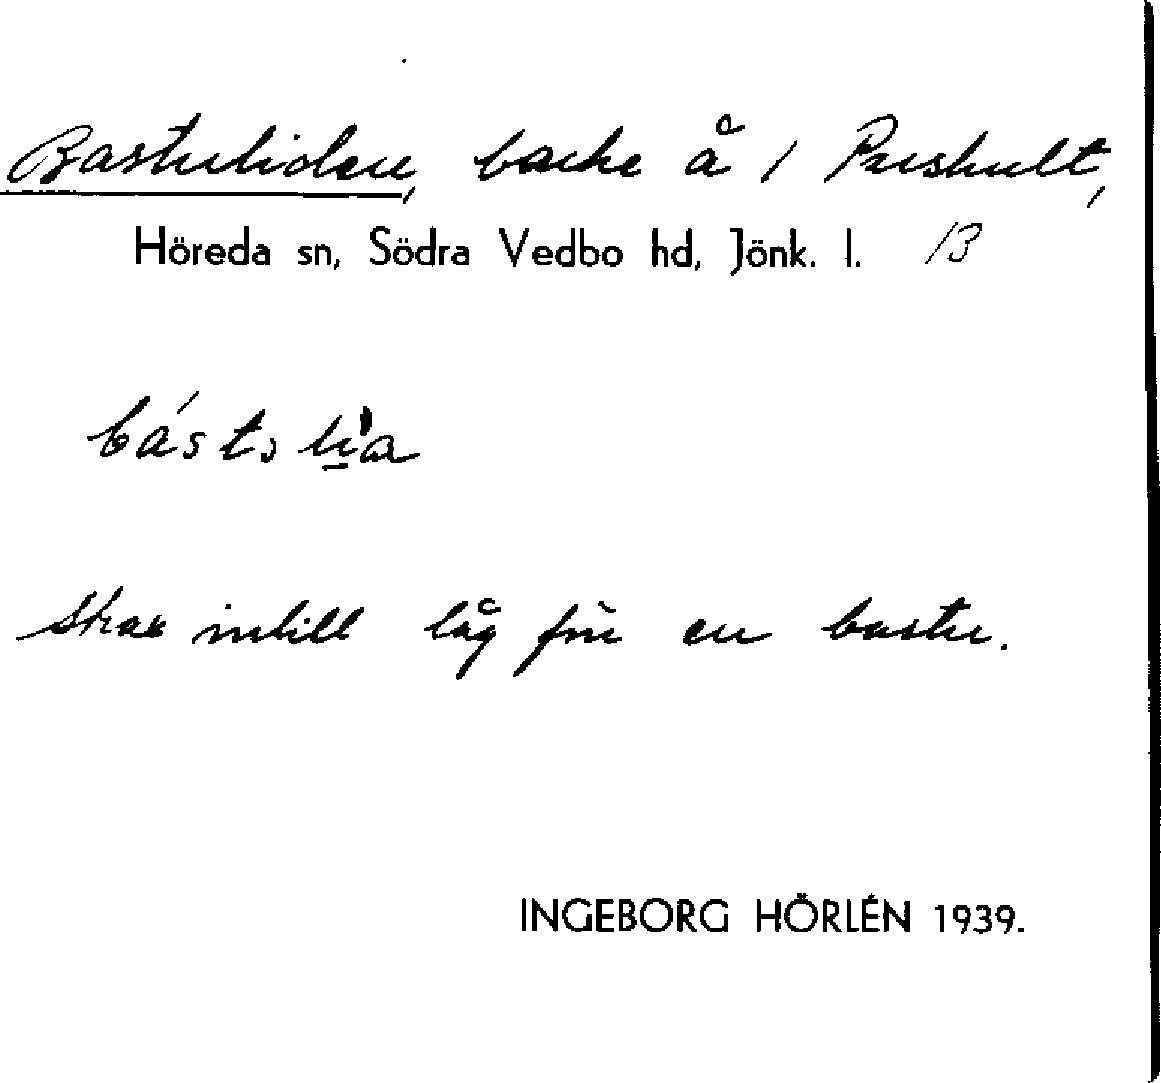 Bastuliden, backe å / Pusshult,
Höreda sn, Södra Vedbo hd, Jönk. l. 13
Strax intill låg förr en bastu.
INGEBORG HÖRLÉN 1939.